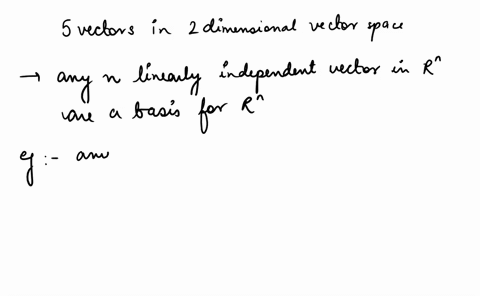 5 vectors in 2 dimensional vector space
→ any n linearly independent vector in Rⁿ
are a basis for Rⁿ
eg :- any